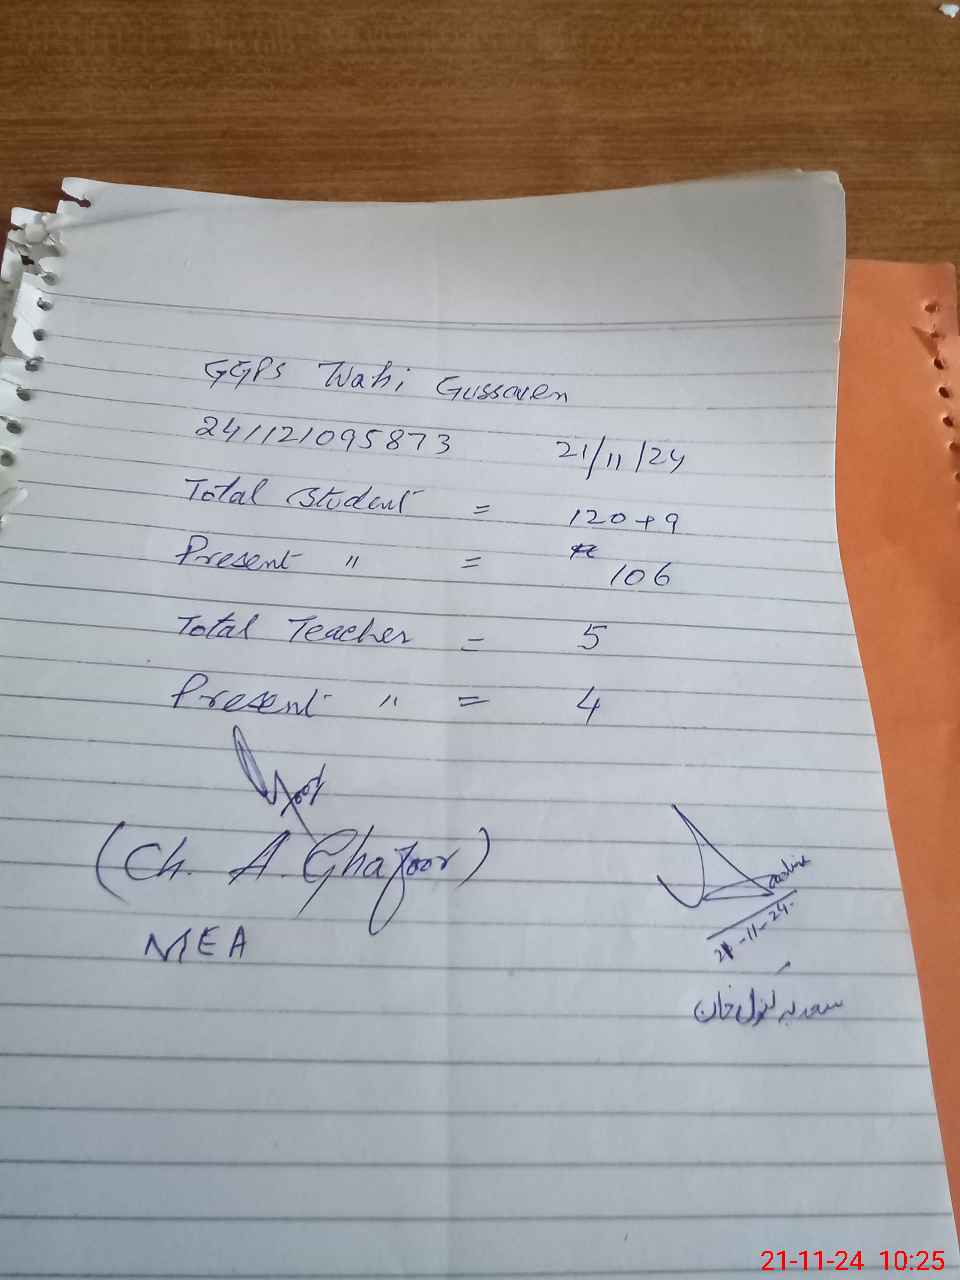 GGPS Wahi Gussaven
241121095873 21/11/24
Total Student = 120+9
Present " = 106
Total Teacher = 5
Present " = 4
(Ch. A. Ghafoor)
MEA
21-11-24.
سعدیہ کنول خان
21-11-24 10:25